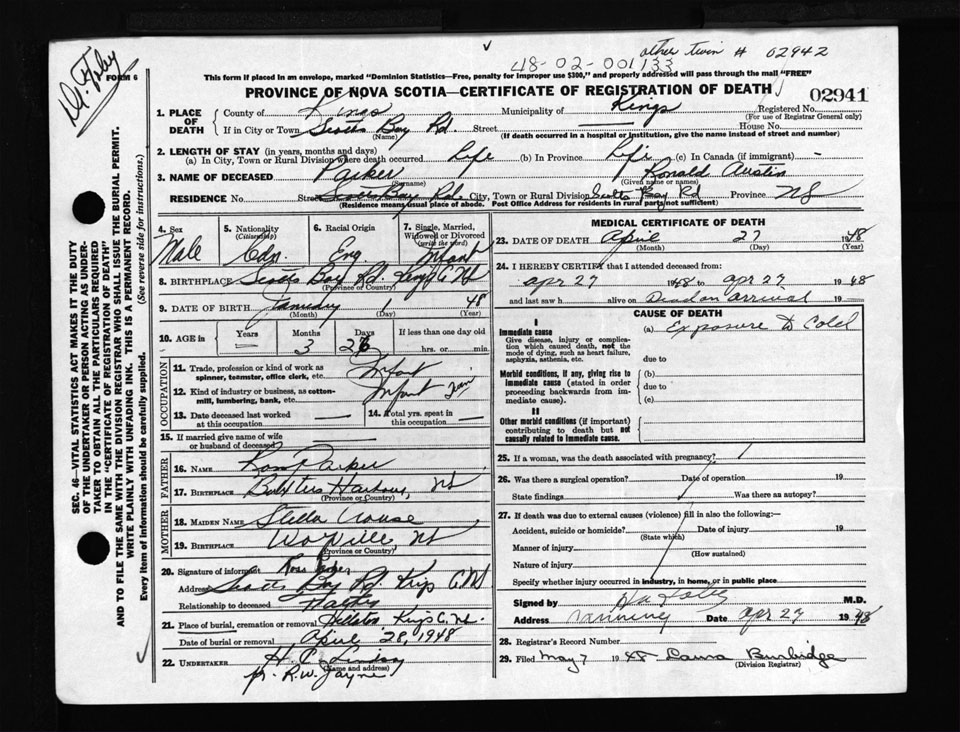 other twin # 02942
48-02-001133
Dr. Foley
FORM 6
This form if placed in an envelope, marked "Dominion Statistics—Free, penalty for improper use $300," and properly addressed will pass through the mail "FREE"
PROVINCE OF NOVA SCOTIA—CERTIFICATE OF REGISTRATION OF DEATH
02941
SEC. 46—VITAL STATISTICS ACT MAKES IT THE DUTY OF THE UNDERTAKER OR PERSON ACTING AS UNDERTAKER TO OBTAIN ALL THE PARTICULARS REQUIRED IN THE "CERTIFICATE OF REGISTRATION OF DEATH" AND TO FILE THE SAME WITH THE DIVISION REGISTRAR WHO SHALL ISSUE THE BURIAL PERMIT.
WRITE PLAINLY WITH UNFADING INK. THIS IS A PERMANENT RECORD.
Every item of information should be carefully supplied. (See reverse side for instructions.)
1. PLACE OF DEATH County of Kings Municipality of Kings Registered No.
(For use of Registrar General only)
If in City or Town Scotts Bay Rd. Street House No.
(Name) (If death occurred in a hospital or institution, give the name instead of street and number)
2. LENGTH OF STAY (in years, months and days)
(a) In City, Town or Rural Division where death occurred Life (b) In Province Life (c) In Canada (if immigrant) -
3. NAME OF DECEASED Parker Ronald Austin
(Surname) (Given name or names)
RESIDENCE No. Street Scotts Bay Rd. City, Town or Rural Division Scotts Bay Rd Province NS
(Residence means usual place of abode. Post Office Address for residents in rural parts not sufficient)
4. Sex Male
5. Nationality (Citizenship) Cdn.
6. Racial Origin Eng
7. Single, Married, Widowed or Divorced (write the word) Infant
8. BIRTHPLACE Scotts Bay Rd. Kings C. NS
(Province or Country)
9. DATE OF BIRTH January 1 48
(Month) (Day) (Year)
10. AGE in Years — Months 3 Days 26 If less than one day old
hrs. or min.
OCCUPATION
11. Trade, profession or kind of work as spinner, teamster, office clerk, etc. Infant
12. Kind of industry or business, as cotton-mill, lumbering, bank, etc. Infant
13. Date deceased last worked at this occupation —
14. Total yrs. spent in this occupation —
15. If married give name of wife or husband of deceased
FATHER
16. NAME Ross Parker
17. BIRTHPLACE Baxters Harbour, NS
(Province or Country)
MOTHER
18. MAIDEN NAME Stella
19. BIRTHPLACE Wolfville NS
(Province or Country)
20. Signature of informant Ross Parker
Address Scotts Bay Rd. Kings C. NS
Relationship to deceased Father
21. Place of burial, cremation or removal Kings C. NS.
Date of burial or removal April 28, 1948
22. UNDERTAKER H. C. Lindsay
(Name and address)
pr. R.W. Jayne
MEDICAL CERTIFICATE OF DEATH
23. DATE OF DEATH April 27 1948
(Month) (Day) (Year)
24. I HEREBY CERTIFY that I attended deceased from
apr 27 1948 to apr 27 1948
and last saw h alive on Dead on arrival 19
CAUSE OF DEATH
I
Immediate cause
Give disease, injury or complication which caused death, not the mode of dying, such as heart failure, asphyxia, asthenia, etc.
(a) Exposure to Cold
due to
Morbid conditions, if any, giving rise to immediate cause (stated in order proceeding backwards from immediate cause).
(b)
due to
(c)
II
Other morbid conditions (if important) contributing to death but not causally related to immediate cause.
25. If a woman, was the death associated with pregnancy?
26. Was there a surgical operation? Date of operation 19
State findings Was there an autopsy?
27. If death was due to external causes (violence) fill in also the following:—
Accident, suicide or homicide? Date of injury 19
(State which)
Manner of injury
(How sustained)
Nature of injury
Specify whether injury occurred in industry, in home, or in public place
Signed by M.D.
Address Canning Date apr 27 1948
28. Registrar's Record Number
29. Filed May 7 1948 Laura Burbidge
(Division Registrar)